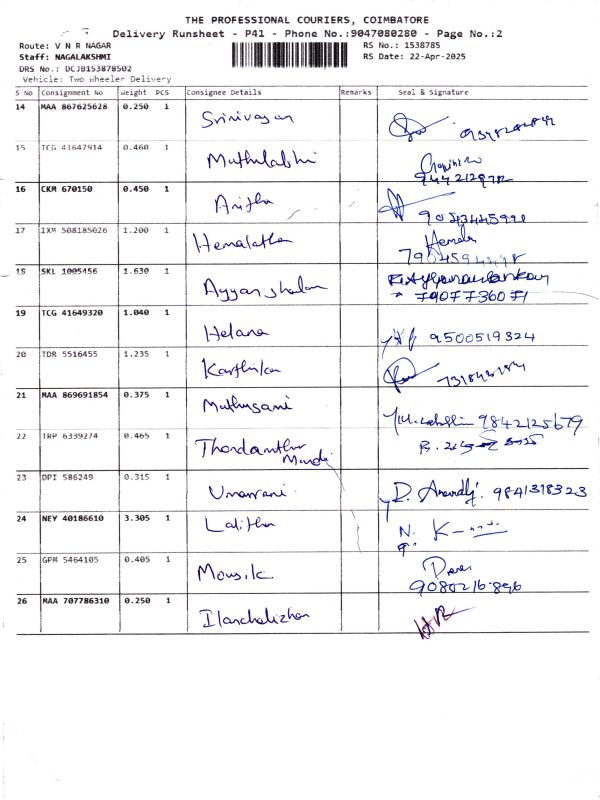 THE PROFESSIONAL COURIERS, COIMBATORE
Delivery Runsheet - P41 - Phone No.:9047080280 - Page No.:2
Route: V N R NAGAR
RS No.: 1538785
Staff: NAGALAKSHMI
RS Date: 22-Apr-2025
DRS No.: DCJB153878502
Vehicle: Two Wheeler Delivery
S No Consignment No Weight PCS Consignee Details Remarks Seal & Signature
14 MAA 867625628 0.250 1 Srinivasan
15 TCG 41647914 0.460 1 Muthulakshi
16 CKM 670150 0.450 1 Anitha
17 IXM 508185026 1.200 1 Hemalatha Hema
18 SKL 1005456 1.630 1
7907773607
19 TCG 41649320 1.040 1 Helana 9500519324
20 TDR 5516455 1.235 1 Karthika
21 MAA 869691854 0.375 1 Muthusami 9842125679
22 TRP 6339274 0.465 1
23 DPI 586249 0.315 1 D. 9841318323
24 NEY 40186610 3.305 1 Lalitha N. K
25 GPM 5464105 0.405 1 Mousik
9080216896
26 MAA 707786310 0.250 1